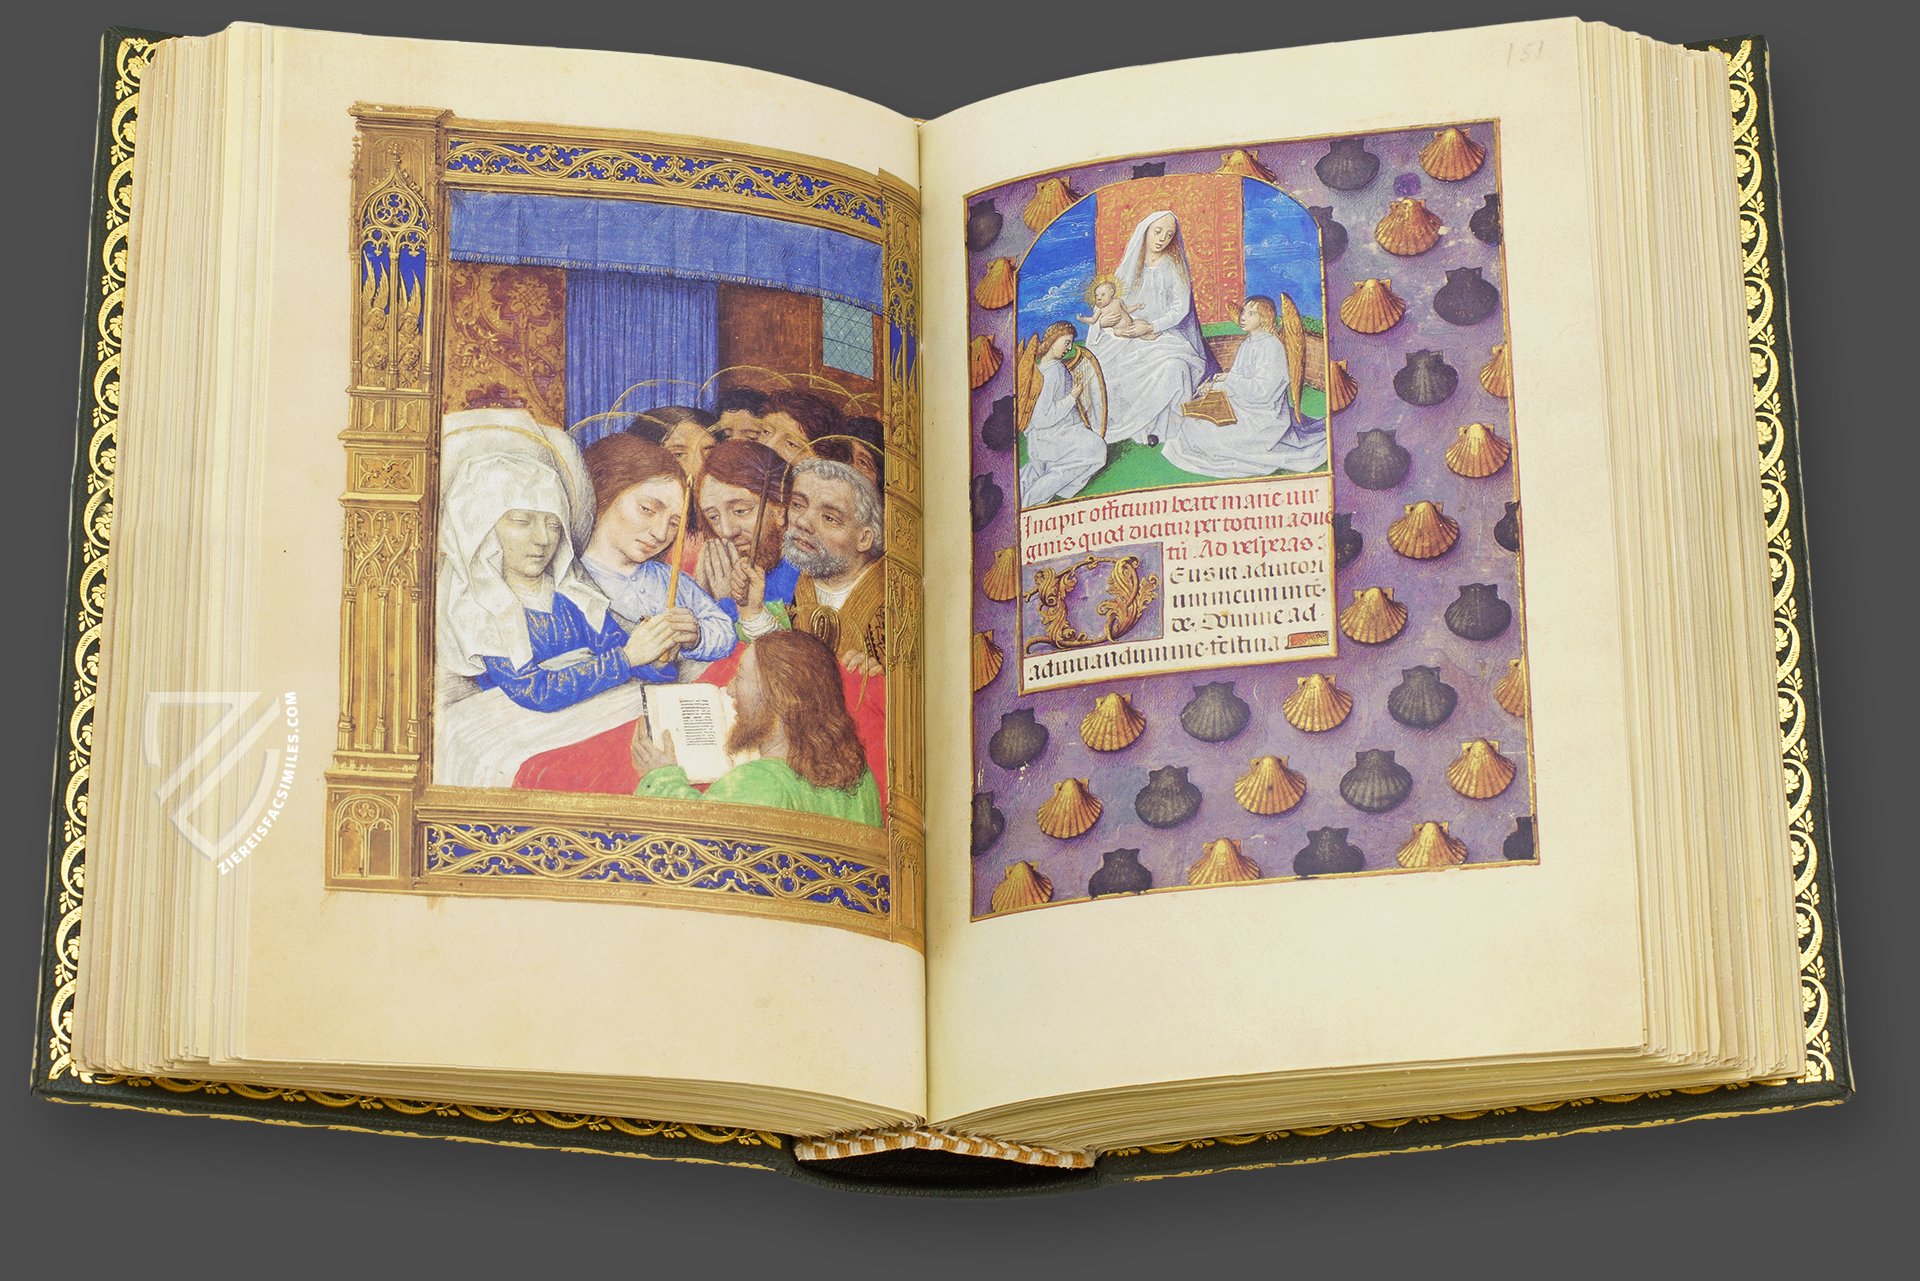 151
Incipit officium beate marie vir
ginis quod dicitur per totum adue
tū. Ad vesperas :
Eus in adiutori
um meum inte
de. Domine ad
adiuuandum me festina
ZIEREISFACSIMILES.COM